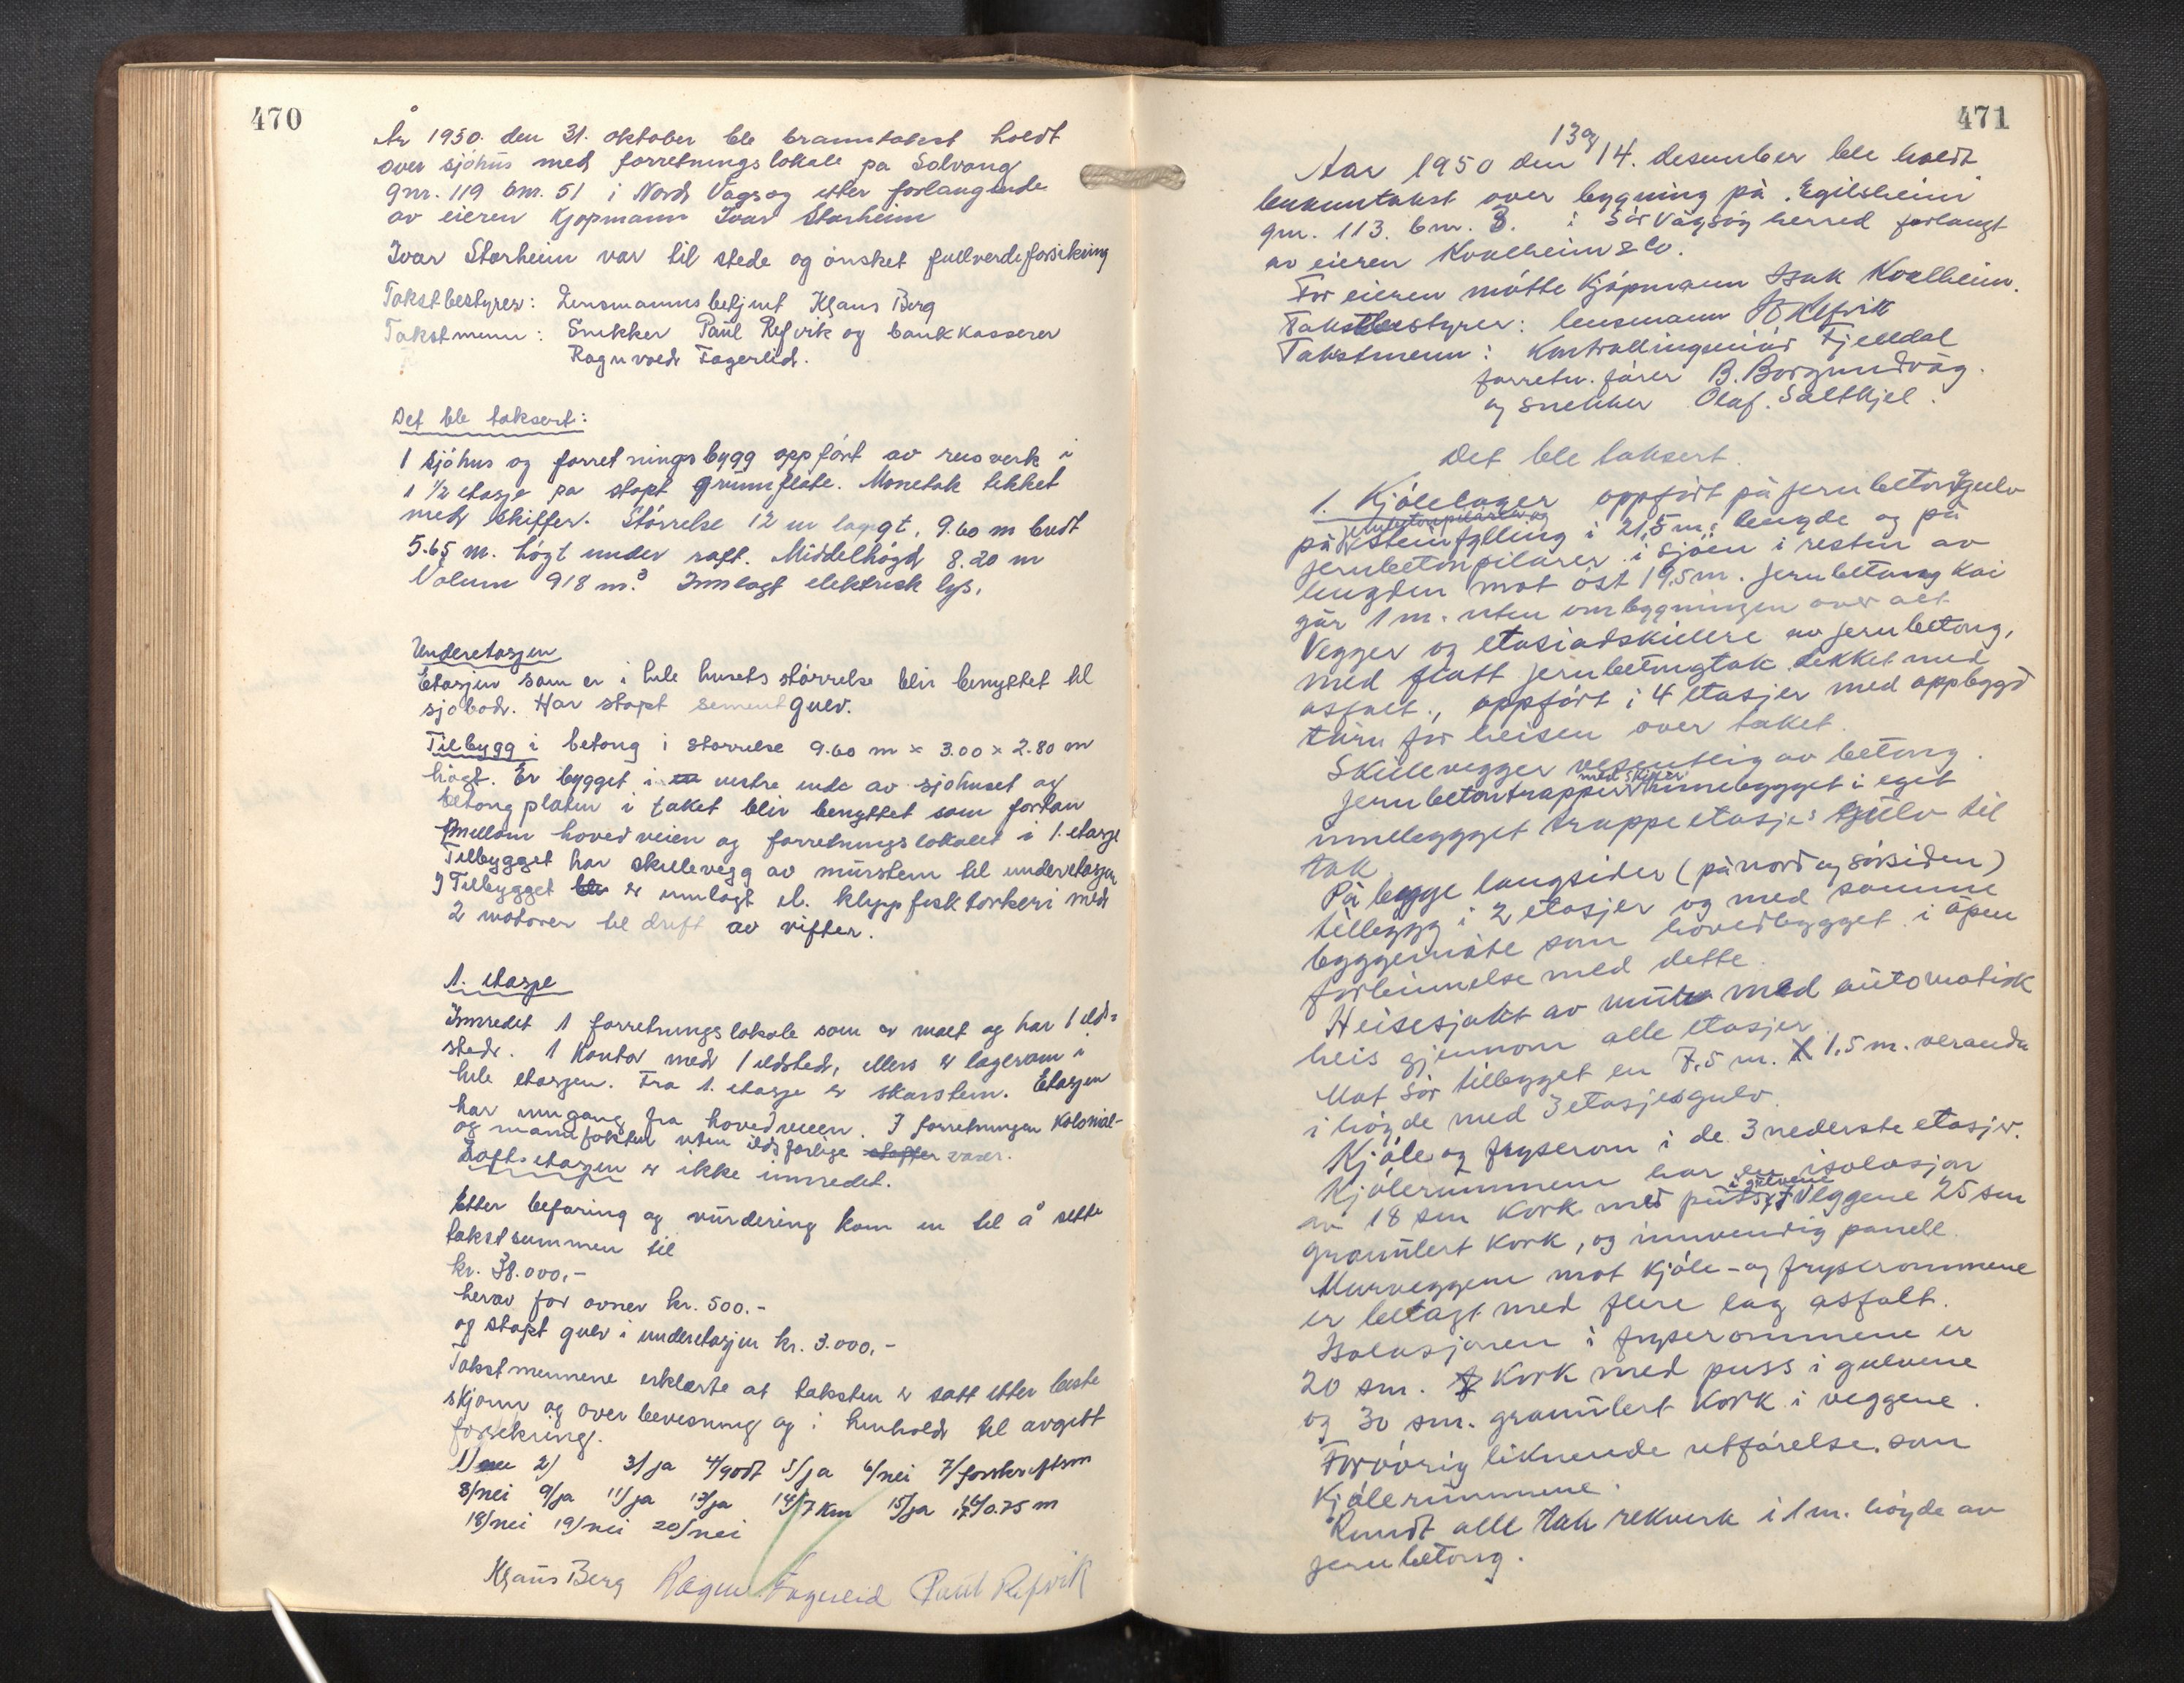 470
År 1950 den 31. oktober ble branntakst holdt
over sjøhus med forretningslokale på Solvang
gnr. 119 bnr. 51 i Nord Vågsøy etter forlangende
av eieren Kjøpmann Ivar Starheim
Ivar Starheim var til stede og ønsket fullverdeforsikring
Takstbestyrer: Lensmannsbetjent Klaus Berg
Takstmenn: Snikker Paul Refvik og bankkasserer
Ragnvald Fagerlid.
Det ble taksert:
1 sjøhus og forretningsbygg oppført av reisverk i
1 1/2 etasje på støpt grunnflate. Mønetak tekket
med skiffer. Størrelse 12 m langt, 9.60 m bredt
5.65 m. høgt under raft. Middelhøgd 8.20 m
Volum 918 m.³ Innlagt elektrisk lys.
Underetasjen
Etasjen som er i hele husets størrelse blir benyttet til
sjøbod. Har støpt sementgulv.
Tilbygg i betong i størrelse 9.60 m x 3.00 x 2.80 m
høgt. Er bygget i vestre ende av sjøhuset og
betongplaten i taket blir benyttet som fortau
mellom hovedveien og forretningslokalet i 1. etasje
Tilbygget har skillevegg av murstein til underetasjen
I Tilbygget er innlagt el. klippfisktørkeri med
2 motorer til drift av vifter.
1. etasje
Innredet 1 forretningslokale som er malt og har 1 ild-
sted. 1 Kontor med 1 ildsted, ellers er lagerrom i
hele etasjen. Fra 1. etasje er skorstein. Etasjen
har inngang fra hovedveien. I forretningen Kolonial-
og manufaktur uten ildsfarlige stoffer varer.
Loft-etasjen er ikke innredet.
Etter befaring og vurdering kom en til å sette
takstsummen til
kr. 38.000,-
herav for ovner kr. 500.-
og støpt gulv i underetasjen kr. 3.000,-
Takstmennene erklærte at taksten er satt etter beste
skjønn og overbevisning og i henhold til avgitt
forsikring.
1/ 2/ 3/ja 4/godt 5/ja 6/nei 7/forskriftsm
8/nei 9/ja 11/ja 13/ja 14/7 km 15/ja 17/0.75 m
18/nei 19/nei 20/nei
Klaus Berg Ragnv. Fagerlid Paul Refvik
471
Aar 1950 den 13 og 14. desember ble holdt
branntakst over bygning på "Egilsheim"
gnr. 113. bnr. 3. i Sør Vågsøy herred forlangt
av eieren Kvalheim & Co.
For eieren møtte Kjøpmann Isak Kvalheim.
Takstbestyrer: lensmann Refvik
Takstmenn: Kontrollingeniør Fjelldal
forretn. fører B. Borgundvåg.
og snekker Olaf. Saltkjel.
Det ble taksert.
1. Kjølelager oppført på jernbetonggulv
på jernbetonpilarer og steinfylling i 21,5 m. lengde og på
jernbetonpilarer i sjøen i resten av
lengden mot øst 19,5 m. Jernbetong kai
går 1 m. uten om bygningen over alt
Vegger og etasjadskillere av jernbetong,
med flatt jernbetongtak dekket med
asfalt., oppført i 4 etasjer med oppbygd
tårn for heisen over taket.
Skillevegger vesentlig av betong.
Jernbetontrapper med skifer innebygget i eget
innebygget trappeetasje: gulv til
tak
På begge langsider (på nord og sørsiden)
tilbygg i 2 etasjer og med samme
byggemåte som hovedbygget i åpen
forbinnelse med dette.
Heisesjakt av mur med automatisk
heis gjennom alle etasjer.
Mot sør tilbygget en 7,5 m. X 1,5 m. veranda
i høyde med 3 etasjesgulv.
Kjøle og fryserom i de 3 nederste etasjer.
Kjølerummene har en isolasjon
av 18 sm kork med puss, i gulvene i veggene 25 sm
granulert kork, og innvendig panell.
Murveggene mot kjøle- og fryserommene
er belagt med flere lag asfalt.
Isolasjonen i fryserommene er
20 sm. kork med puss i gulvene
og 30 sm. granulert kork i veggene.
Forøvrig liknende utførelse som
Kjølerummene.
Rundt alle tak rekverk i 1 m. høyde av
jernbetong.